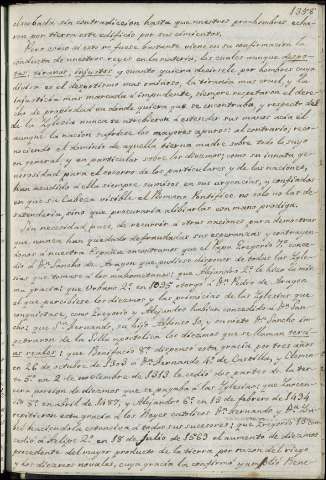 135
derribada sin contradiccion hasta que nuestros pro-hombres echa-
ron por tierra este edificio por sus cimientos.
Pero como si esto no fuese bastante viene en su confirmacion la
conducta de nuestros reyes en la materia, los cuales aunque despo-
tas, tiranos, injustos y cuanto quiera decirsele por hombres cuya
divisa es el despotismo mas el tirania mas cruel, y la
injusticia mas marcada é impudente, siempre respetaron el dere-
cho de propiedad en donde quiera que se encontraba, y respecto del
de la Iglesia nunca se atrevieron á estender sus manos acia él
aunque la nacion sufriese los mayores apuros: al contrario, reco-
nociendo el dominio de aquella tierna madre sobre todo lo suyo
en general, y en particular sobre los diezmos; como su innata ge-
nerosidad para el socorro de los particulares y de las naciones,
han acudido á ella siempre sumisos en sus urgencias, y confiados
en que su Cabeza visible el Romano Pontifice no solo no los de-
satenderia, sino que procuraria aliviarlos con mano prodiga.
Sin necesidad, pues, de recurrir á otras naciones para demostrar
que nunca han quedado defraudadas sus esperanzas, y contrayen-
donos á nuestra España encontramos que el Papa Gregorio 7º conce-
dió á Dn. Sancho de Aragon que pudiese disponer de todas las Igle-
sias que tomase á los mahometanos: que Alejandro 2º le hizo la mis-
ma gracia: que Urbano 2º en 1095 otorgó á Dn. Pedro de Aragon
el que percibiese los diezmos y las primicias de las Iglesias que
conquistase, como Gregorio y Alejandro habian concedido á Dn. San-
cho: que Sn. Fernando, su hijo Alfonso So, y su nieto Dn. Sancho im-
petraron de la Silla Apostolica los diezmos que se llaman terci-
as reales: que Bonifacio 8º dispensó esta gracia por tres años
en 26 de octubre de 1302 á Dn. Fernando 4º de Castilla, y Clemen-
te 5º en 2 de noviembre de 1313 le cedió dos partes de la ter-
cera porcion de diezmos que se pagaba á las Iglesias: que Inocen-
cio 8º en abril de 1487, y Alejandro 6º en 13 de febrero de 1494
repitieron esta gracia á los Reyes catolicos Dn. Fernando, y Dª Isa-
bel haciendola estensiva á todos sus sucesores: que Gregorio 13 con-
cedió á Felipe 2º en 18 de Julio de 1569 el aumento de diezmos
procedente del mayor producto de la tierra por razon del riego
y los diezmos novales, cuya gracia la confirmó y amplió Bene-